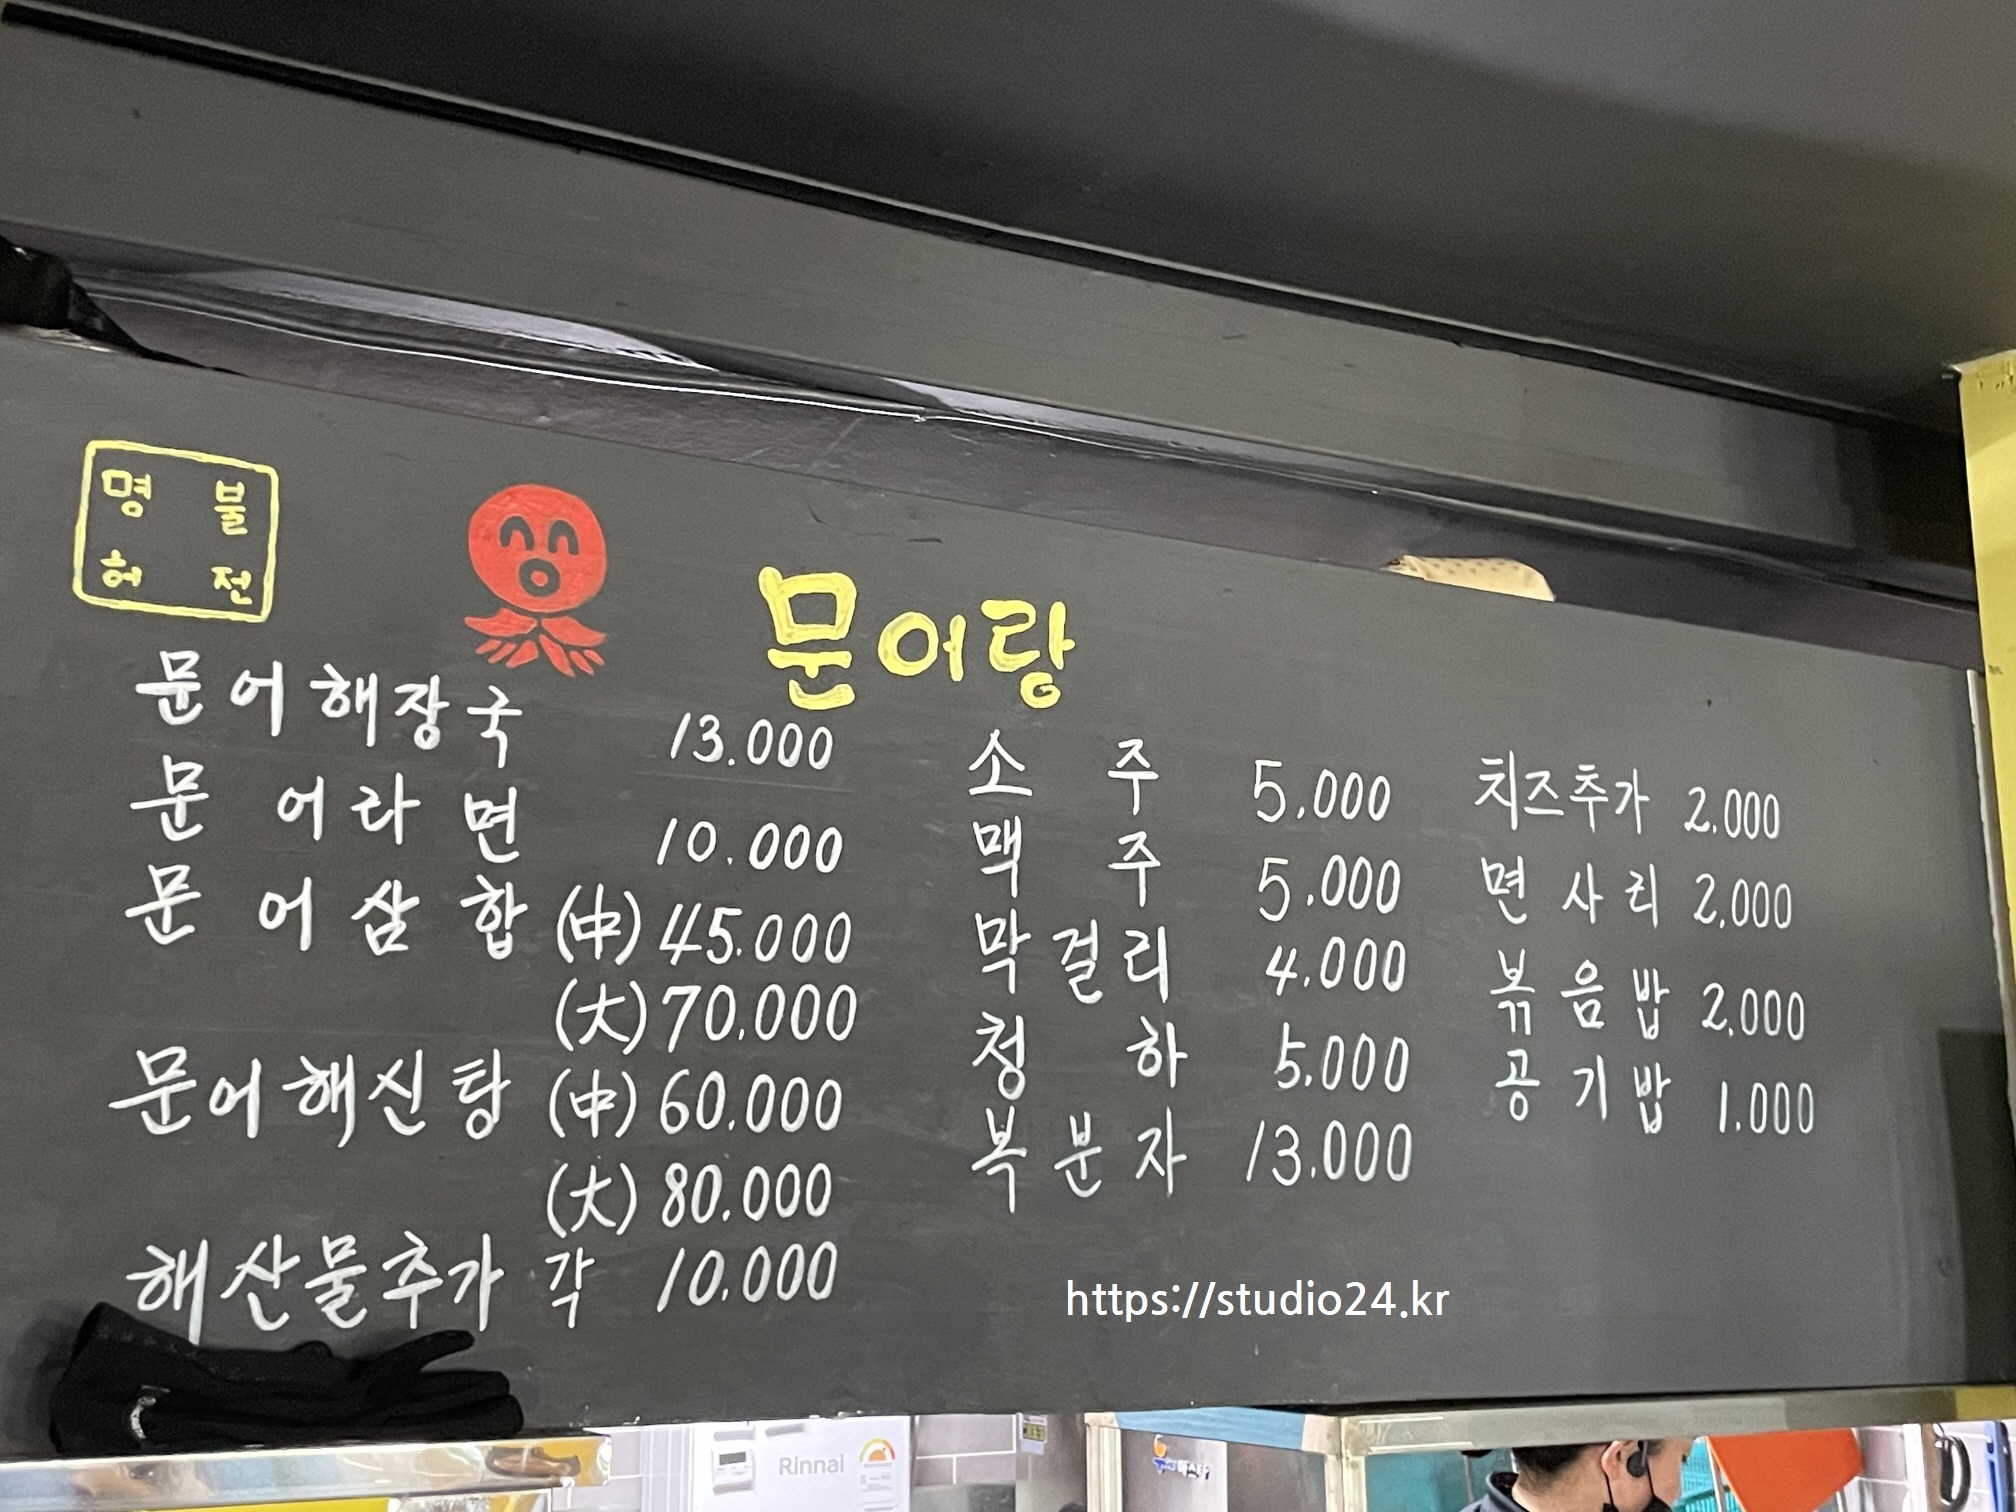 명 불
허 전
문어랑
문어해장국 13.000
문어라면 10.000
문어삼합 (中) 45.000
(大) 70.000
문어해신탕 (中) 60.000
(大) 80.000
해산물추가 각 10.000
소주 5.000
맥주 5.000
막걸리 4.000
청하 5.000
복분자 13.000
치즈추가 2.000
면사리 2.000
볶음밥 2.000
공기밥 1.000
https://studio24.kr
Rinnai